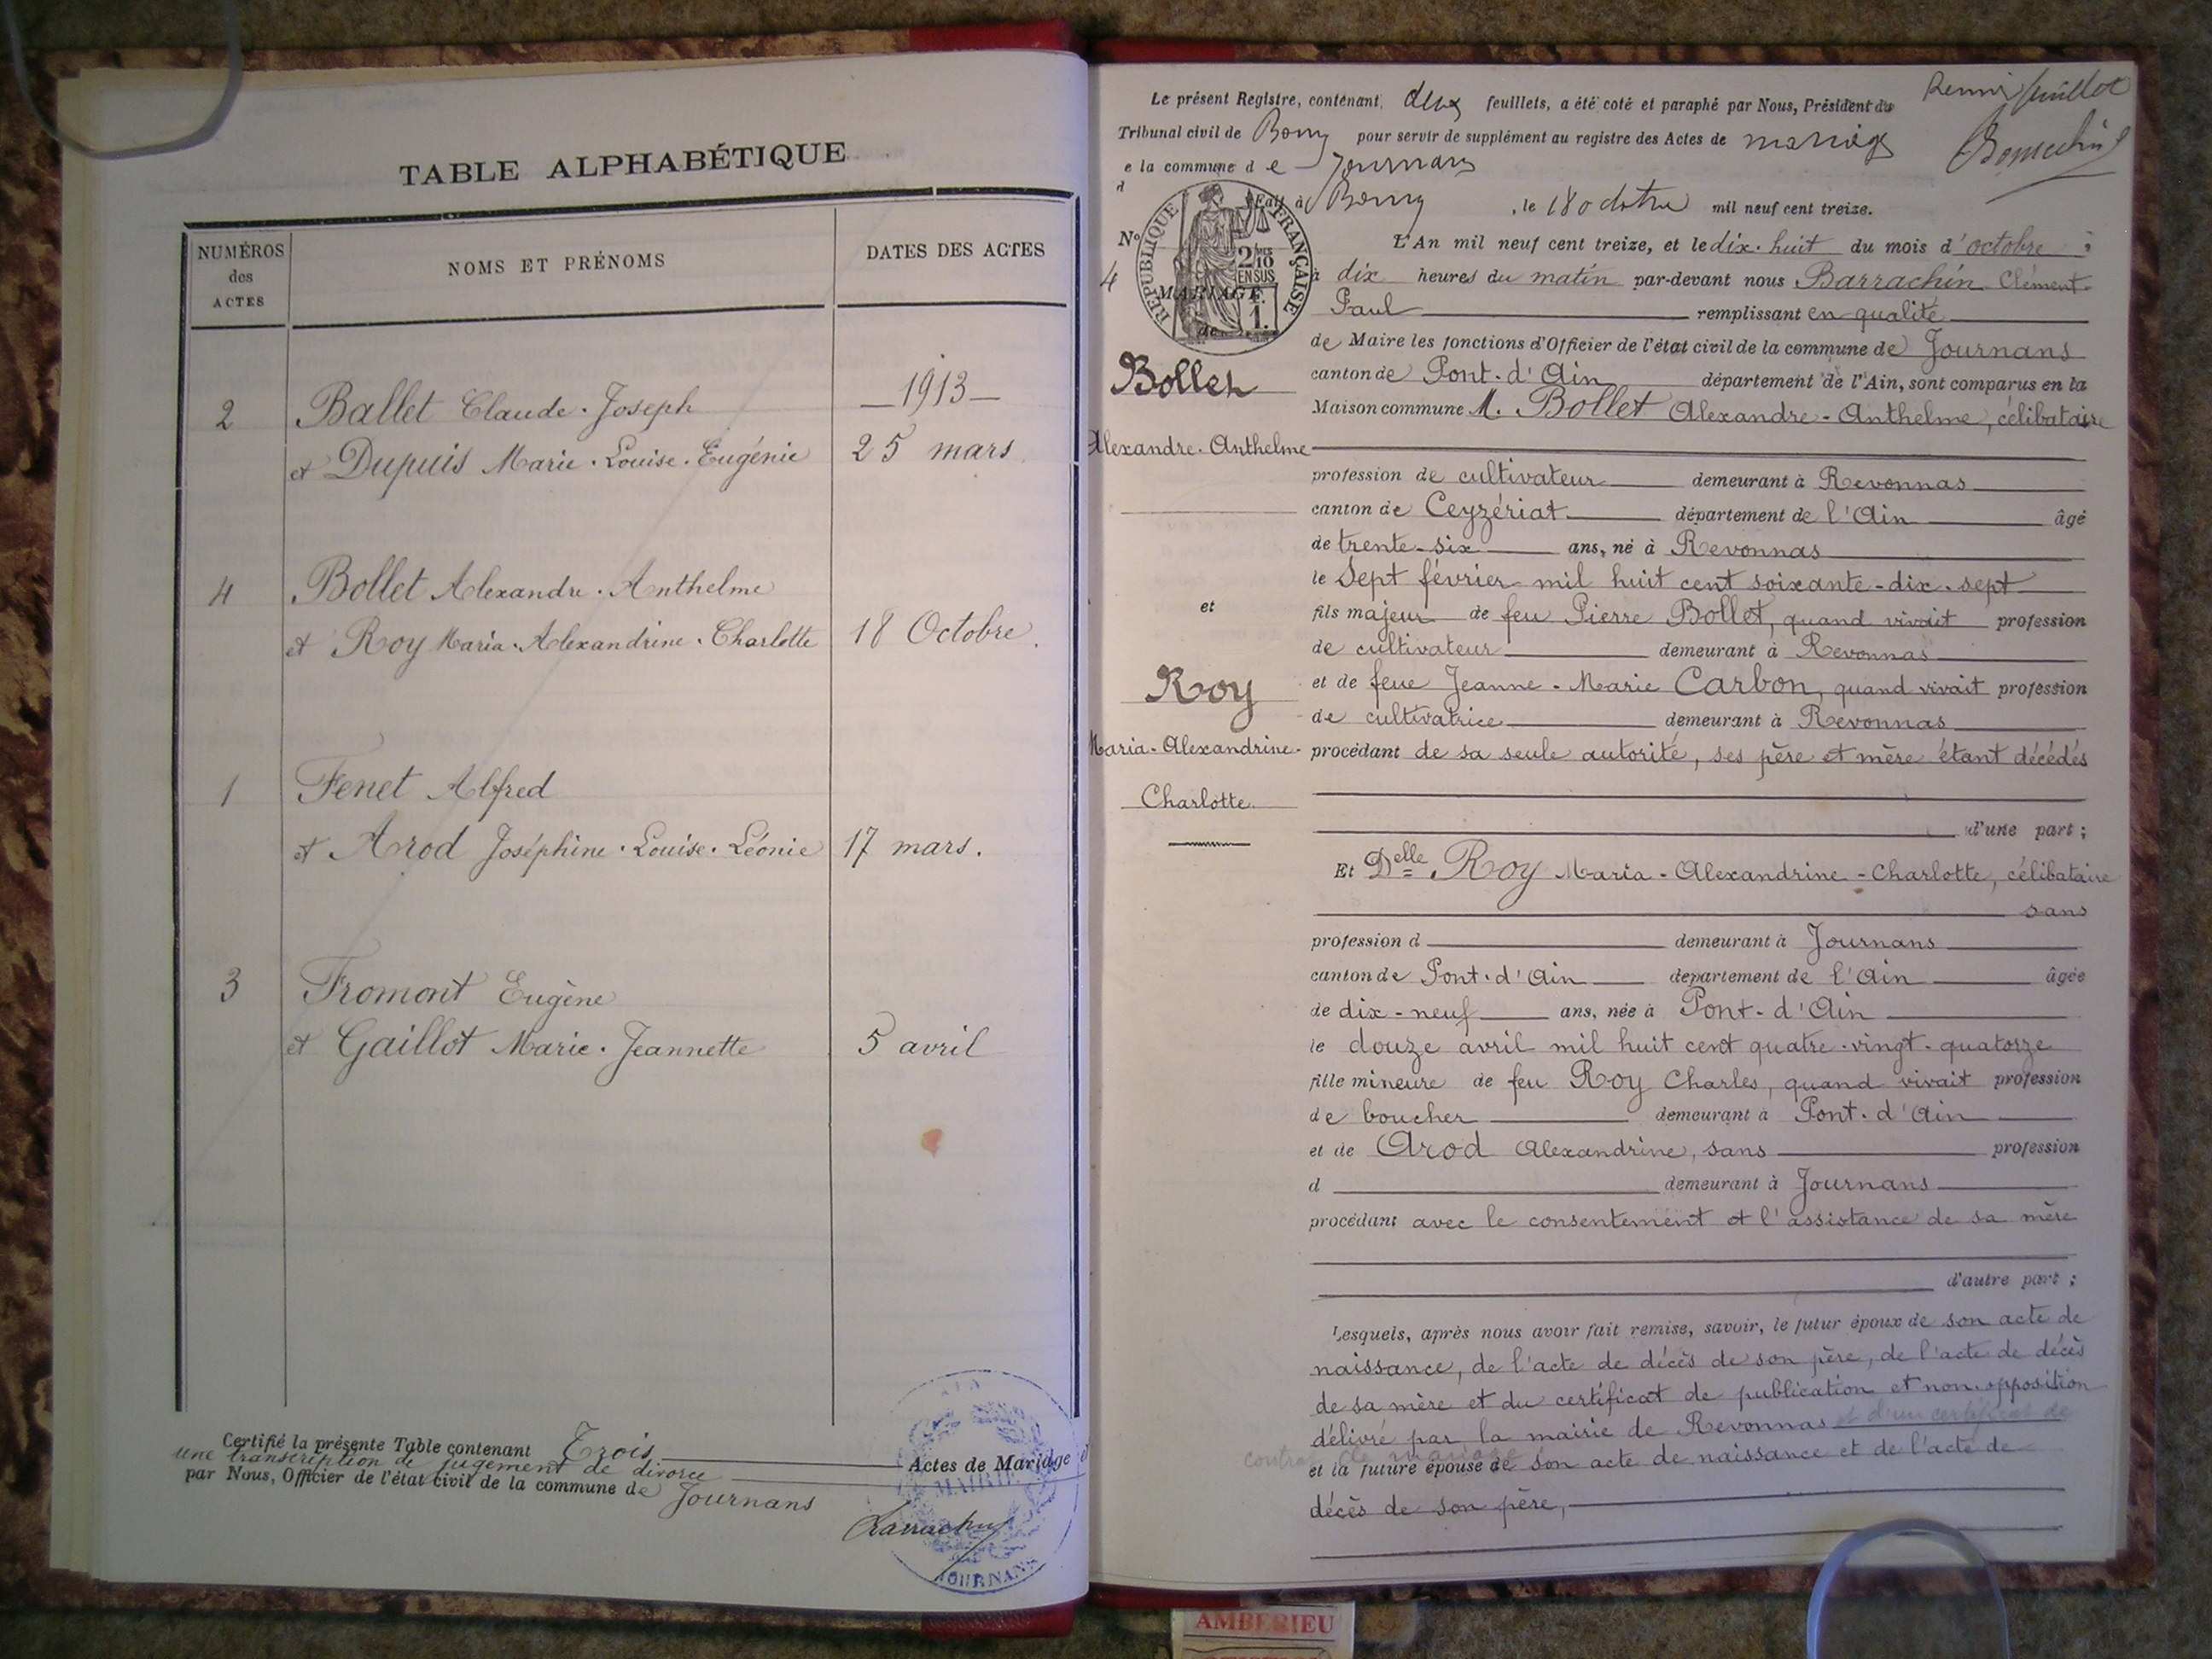 TABLE ALPHABÉTIQUE
NUMÉROS
des
ACTES
NOMS ET PRÉNOMS
DATES DES ACTES
1913
2 Ballet Claude-Joseph
et Dupuis Marie-Louise-Eugénie 25 mars
4 Bollet Alexandre-Anthelme
et Roy Maria-Alexandrine-Charlotte 18 Octobre.
1 Fenet Alfred
et Arod Joséphine-Louise-Léonie 17 mars.
3 Fromont Eugène
et Gaillot Marie-Jeannette 5 avril
Certifié la présente Table contenant Trois Actes de Mariage
une transcription de jugement de divorce
par Nous, Officier de l'état civil de la commune de Journans
MAIRIE
JOURNANS
Le présent Registre, contenant deux feuillets, a été coté et paraphé par Nous, Président du
Tribunal civil de Bourg pour servir de supplément au registre des Actes de mariage
de la commune de Journans
Fait à Bourg, le 18 octobre mil neuf cent treize.
RÉPUBLIQUE FRANÇAISE
2/10
EN SUS
1.
No
4
MARIAGE
de
Bollet
Alexandre-Anthelme
et
Roy
Maria-Alexandrine-
Charlotte
L'An mil neuf cent treize, et le dix-huit du mois d'octobre à
dix heures du matin par-devant nous Barrachin Clément-
Paul remplissant en qualité
de Maire les fonctions d'Officier de l'état civil de la commune de Journans
canton de Pont-d'Ain département de l'Ain, sont comparus en la
Maison commune M. Bollet Alexandre-Anthelme, célibataire
profession de cultivateur demeurant à Revonnas
canton de Ceyzériat département de l'Ain âgé
de trente-six ans, né à Revonnas
le Sept février mil huit cent soixante-dix-sept
fils majeur de feu Pierre Bollet, quand vivait profession
de cultivateur demeurant à Revonnas
et de feue Jeanne-Marie Carbon, quand vivait profession
de cultivatrice demeurant à Revonnas
procédant de sa seule autorité, ses père et mère étant décédés
d'une part ;
Et Delle Roy Maria-Alexandrine-Charlotte, célibataire
sans
profession d demeurant à Journans
canton de Pont-d'Ain département de l'Ain âgée
de dix-neuf ans, née à Pont-d'Ain
le douze avril mil huit cent quatre-vingt-quatorze
fille mineure de feu Roy Charles, quand vivait profession
de boucher demeurant à Pont-d'Ain
et de Arod Alexandrine, sans profession
d demeurant à Journans
procédant avec le consentement et l'assistance de sa mère
d'autre part ;
Lesquels, après nous avoir fait remise, savoir, le futur époux de son acte de
naissance, de l'acte de décès de son père, de l'acte de décès
de sa mère et du certificat de publication et non-opposition
délivré par la mairie de Revonnas et d'un certificat de
contrat de mariage
et la future épouse de son acte de naissance et de l'acte de
décès de son père,
AMBERIEU